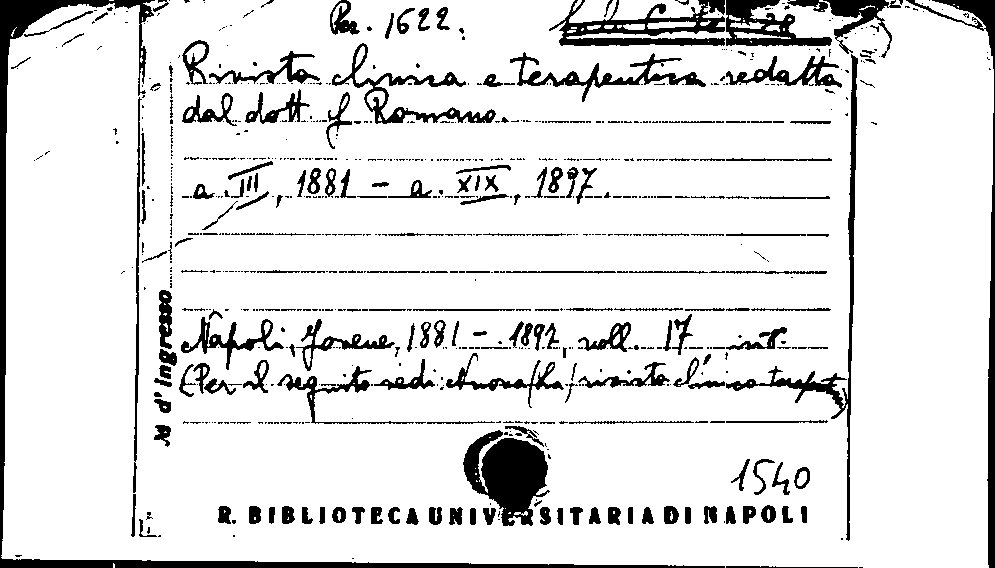 Per. 1622.
Rivista clinica e terapeutica redatta
dal dott. f Romano.
a. III, 1881 - a. XIX, 1897.
Napoli, Jovene, 1881 - 1897, voll. 17 in 8.
(Per il seguito vedi: Nuova (La) rivista clinico terapeutica)
N d' ingresso
1540
R. BIBLIOTECA UNIVERSITARIA DI NAPOLI